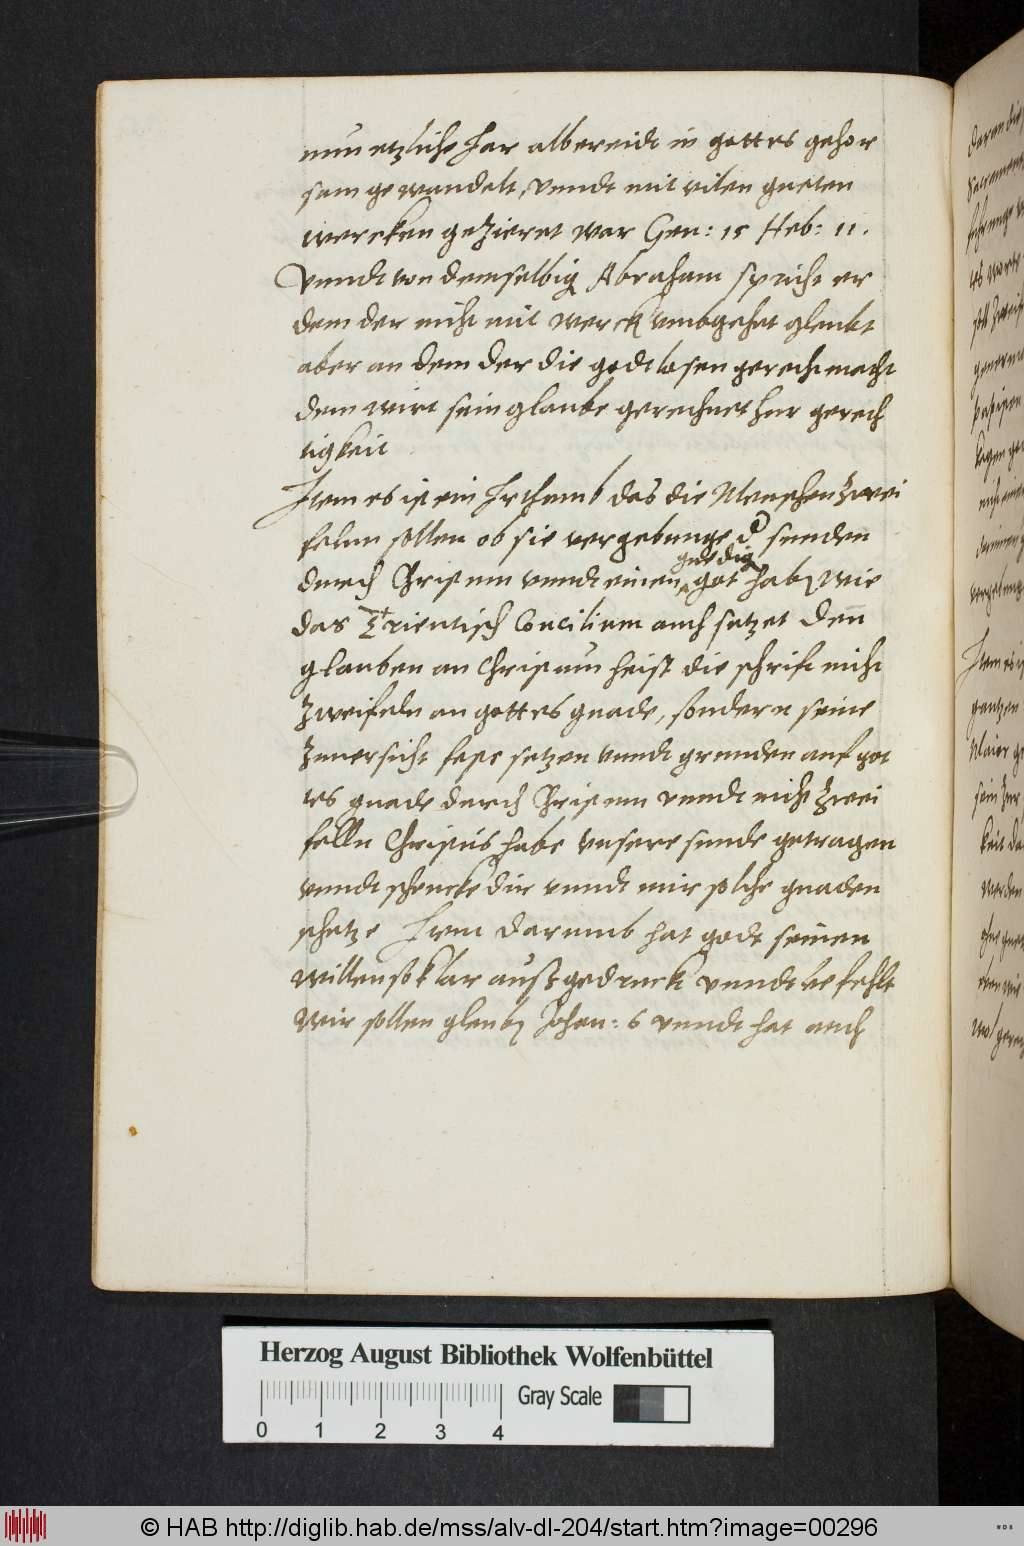 nun etzliche Jar albereidt in gottes gehor
sam gewandelt, vnndt mit vilen gueten
wercken gezieret war Gen: 15 Heb: 11.
Vnndt von demselbig Abraham spricht er
dem der nicht mit werck vmbgehet gleubt
aber an dem der die godtlosen gerecht macht
dem wirt sein glaube gerechnet zur gerech
tigkeit
Item es ist ein Irthumb das die Menschen zwei
feln sollen ob sie vergebunge d sunden
gnedig
durch Christum vnndt einen got hab wie
das Trientisch Concilium auch setzet Den
glauben an Christum heist die schrift nicht
zweifeln an gottes gnade, sondern seine
zuuersicht fest setzen vnndt grunden auf got
tes gnade durch Christum vnndt nicht zwei
felln Christus habe vnsere sunde getragen
vnndt schencke dir vnndt mir solche gnaden
schetze Item darumb hat godt seinen
willen so klar außgedruckt vnndt befehlt
wir sollen gleub Johan: 6 vnndt hat auch
Herzog August Bibliothek Wolfenbüttel
Gray Scale
0 1 2 3 4
© HAB http://diglib.hab.de/mss/alv-dl-204/start.htm?image=00296